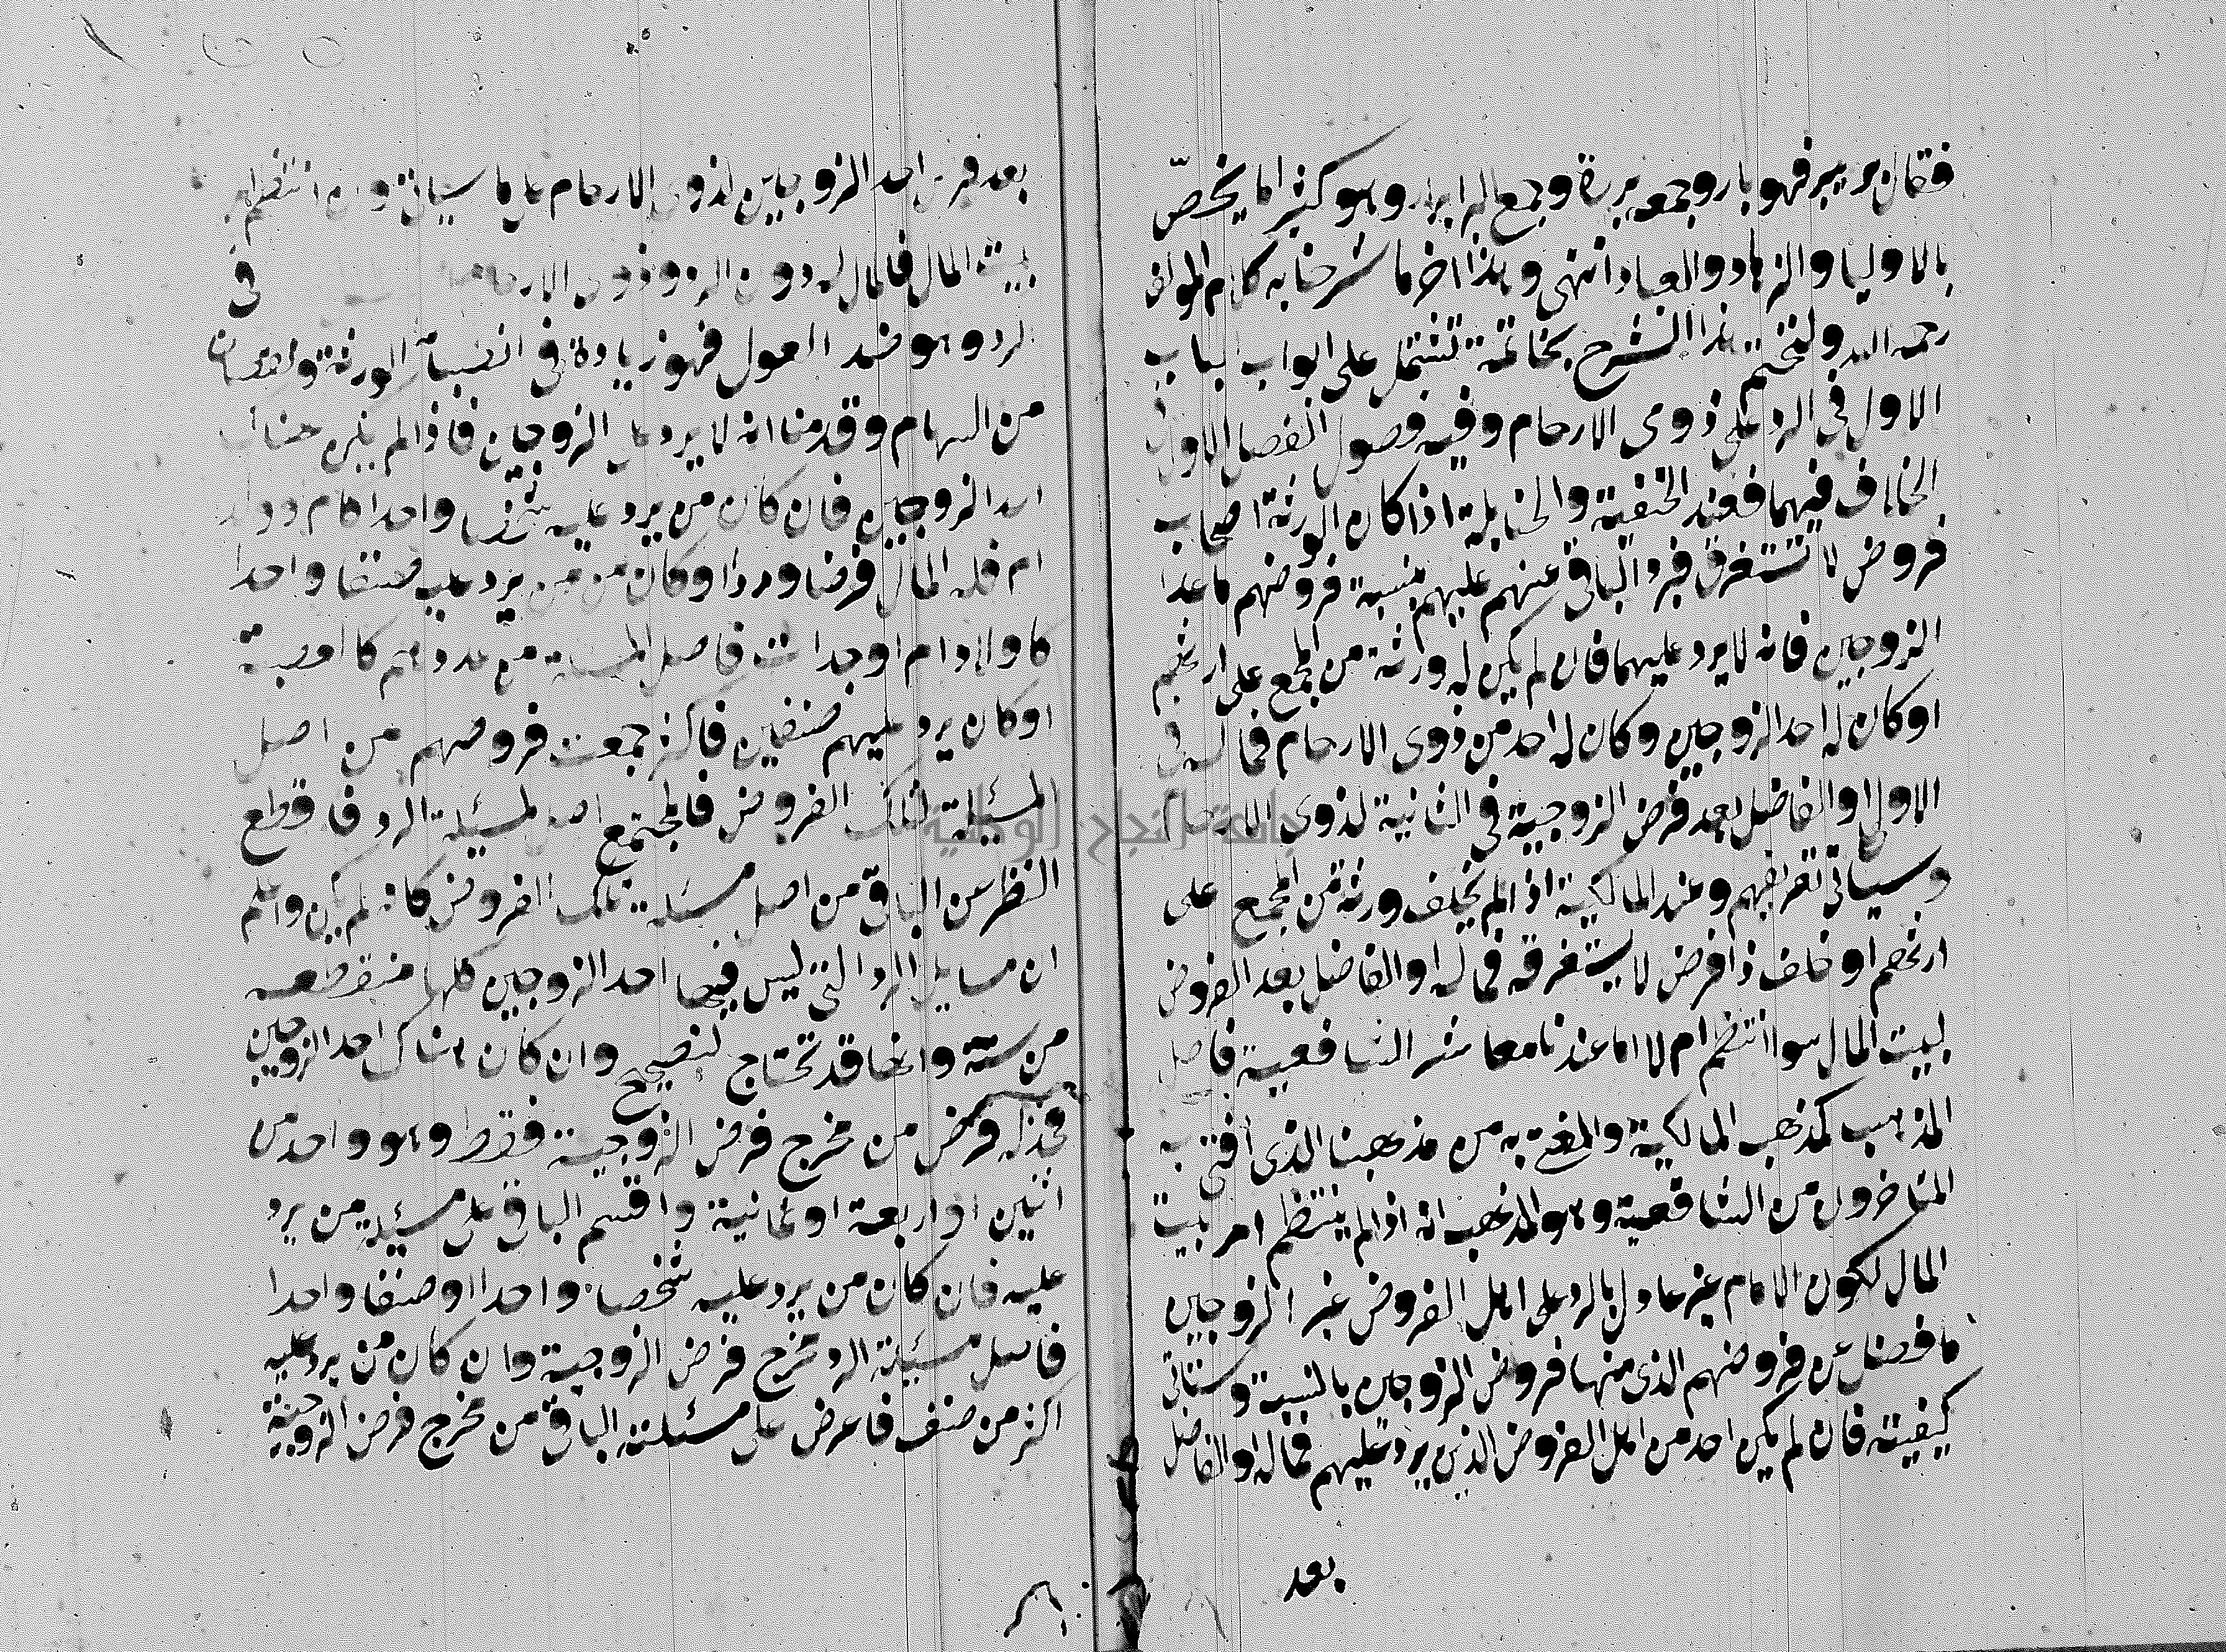 فقال بر يبر فهو بار وجمعه بررة وجمع البر ابرار وهو كثيرا ما يخصّ
بالاوليا والزهاد والعباد انتهى وهذا اخر ما شرحنا به كلام المولف
رحمه الله ولنختم هذا الشرح بخاتمة تشتمل على ابواب الباب
الاول في الرد على ذوى الارحام وفيه فصول الفصل الاول
الخلاف فيهما فعند الحنفية والحنابلة اذا كان الورثة اصحاب
فروض لا تستغرق فيرد الباقى عنهم عليهم بنسبة فروضهم ما عدا
الزوجين فانه لا يرد عليهما فان لم يكن له ورثة من المجمع على ارثهم
او كان له احد الزوجين وكان له احد من ذوى الارحام فماله فى
الاولى او الفاضل بعد فرض الزوجية فى الثانية لذوى الارحام
وسياتى تعريفهم وعند المالكية اذا لم يخلف ورثة من المجمع على
ارثهم او خلف ذا فرض لا يستغرقه فماله او الفاضل بعد الفروض
لبيت المال سوا انتظم ام لا اما عندنا معاشر الشافعية فاصل
المذهب كمذهب المالكية والمفتى به من مذهبنا الذى افتى به
المتاخرون من الشافعية وهو المذهب انه اذا لم ينتظم امر بيت
المال لكون الامام غير عادل بالرد على اهل الفروض غير الزوجين
ما فضل عن فروضهم الذى منها فروض الزوجين بالنسبة وستاتى
كيفيته فان لم يكن احد من اهل الفروض الذين يرد عليهم فماله او الفاضل
بعد
بعد فرض احد الزوجين لذوى الارحام على ما سياتى وان انتظم
بيت المال فالمال له دون الرد وذوى الارحام فى
الرد وهو ضد العول فهو زيادة فى انصباء الورثة ونقصان
من السهام وقدمنا انه لا يرد على الزوجين فاذا لم يكن هناك
احد الزوجين فان كان من يرد عليه شخصا واحدا كام وولد
ام فله المال فرضا وردا او كان من يرد عليه صنفا واحدا
كاولاد ام او جدات فاصل المسئلة من عددهم كالعصبة
او كان يرد عليهم صنفين فاكثر جمعت فروضهم من اصل
المسئلة لتلك الفروض فالمجتمع اصل لمسئلة الرد فاقطع
النظر عن الباقى من اصل مسئلة تلك الفروض كان لم يكن واعلم
ان مسايل الرد التى ليس فيها احد الزوجين كلها منقطعه
من ستة وانها قد تحتاج لتصحيح وان كان هناك احد الزوجين
فخذ له فرضه من مخرج فرض الزوجية فقط وهو واحد من
اثنين او اربعة او ثمانية واقسم الباقى على مسئلة من يرد
عليه فان كان من يرد عليه شخصا واحدا او صنفا واحدا
فاصل مسئلة الرد مخرج فرض الزوجية وان كان من يرد عليه
اكثر من صنف فاعرض على مسئلته الباقى من مخرج فرض الزوجية